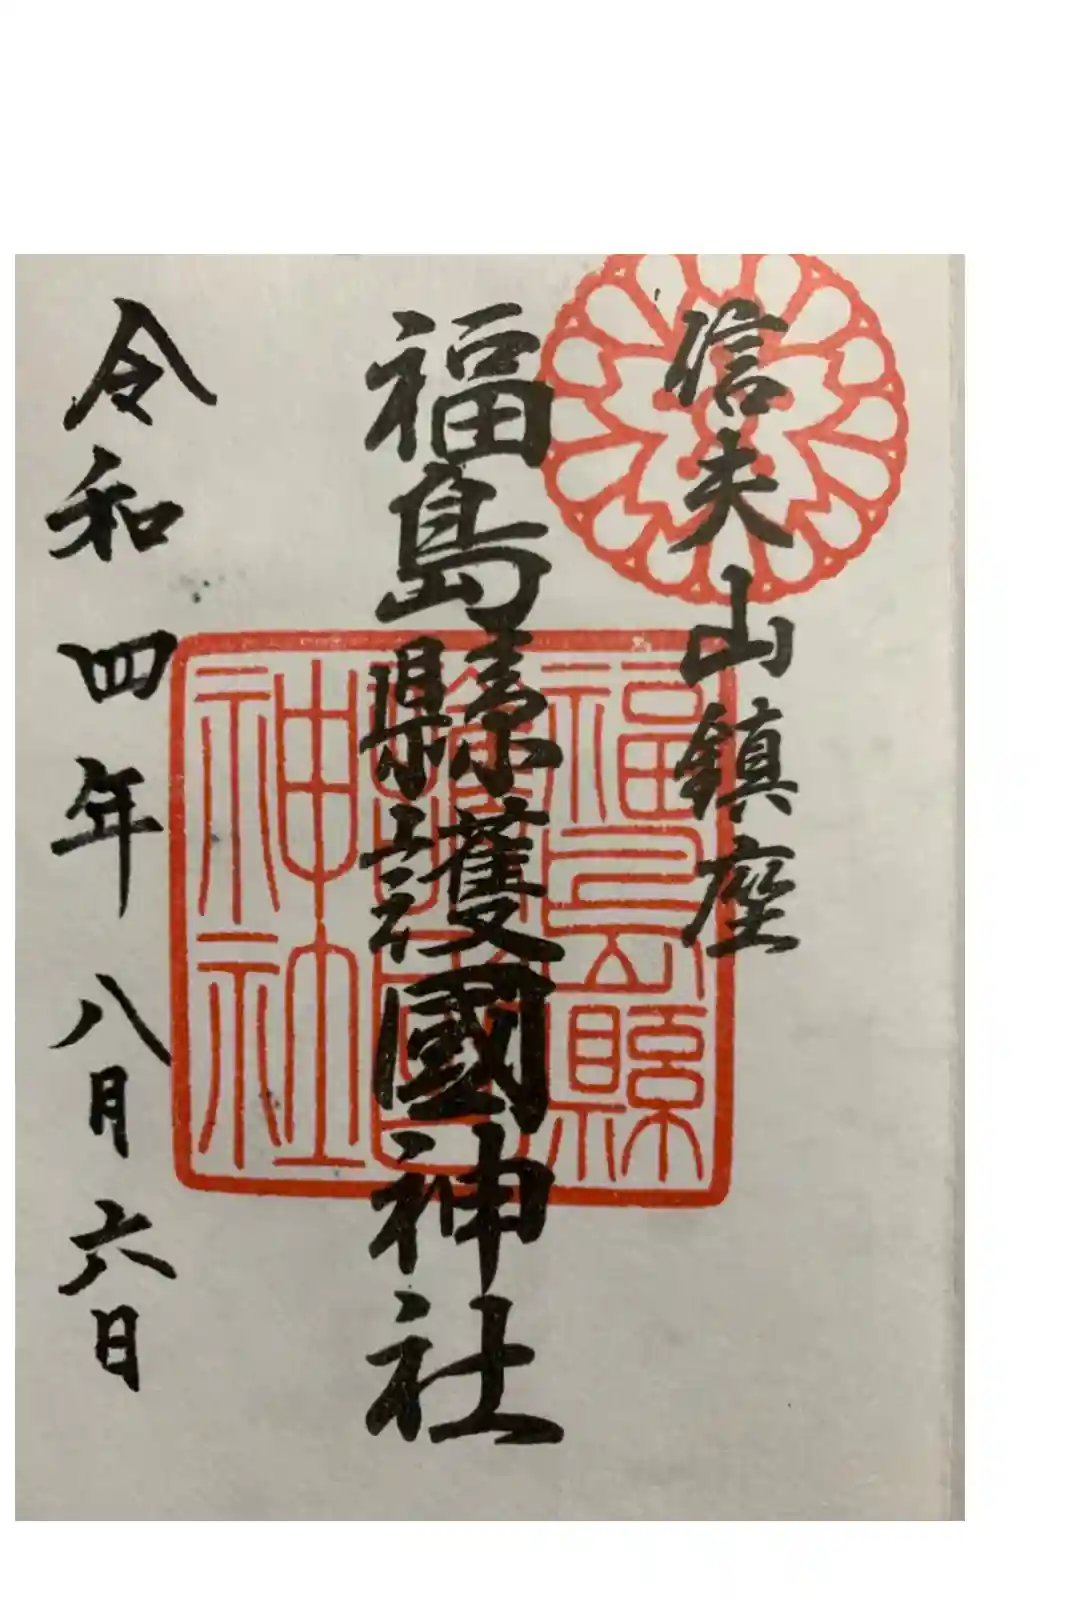 信夫山鎮座
福島縣護國神社
福島縣護國神社
令和四年八月六日